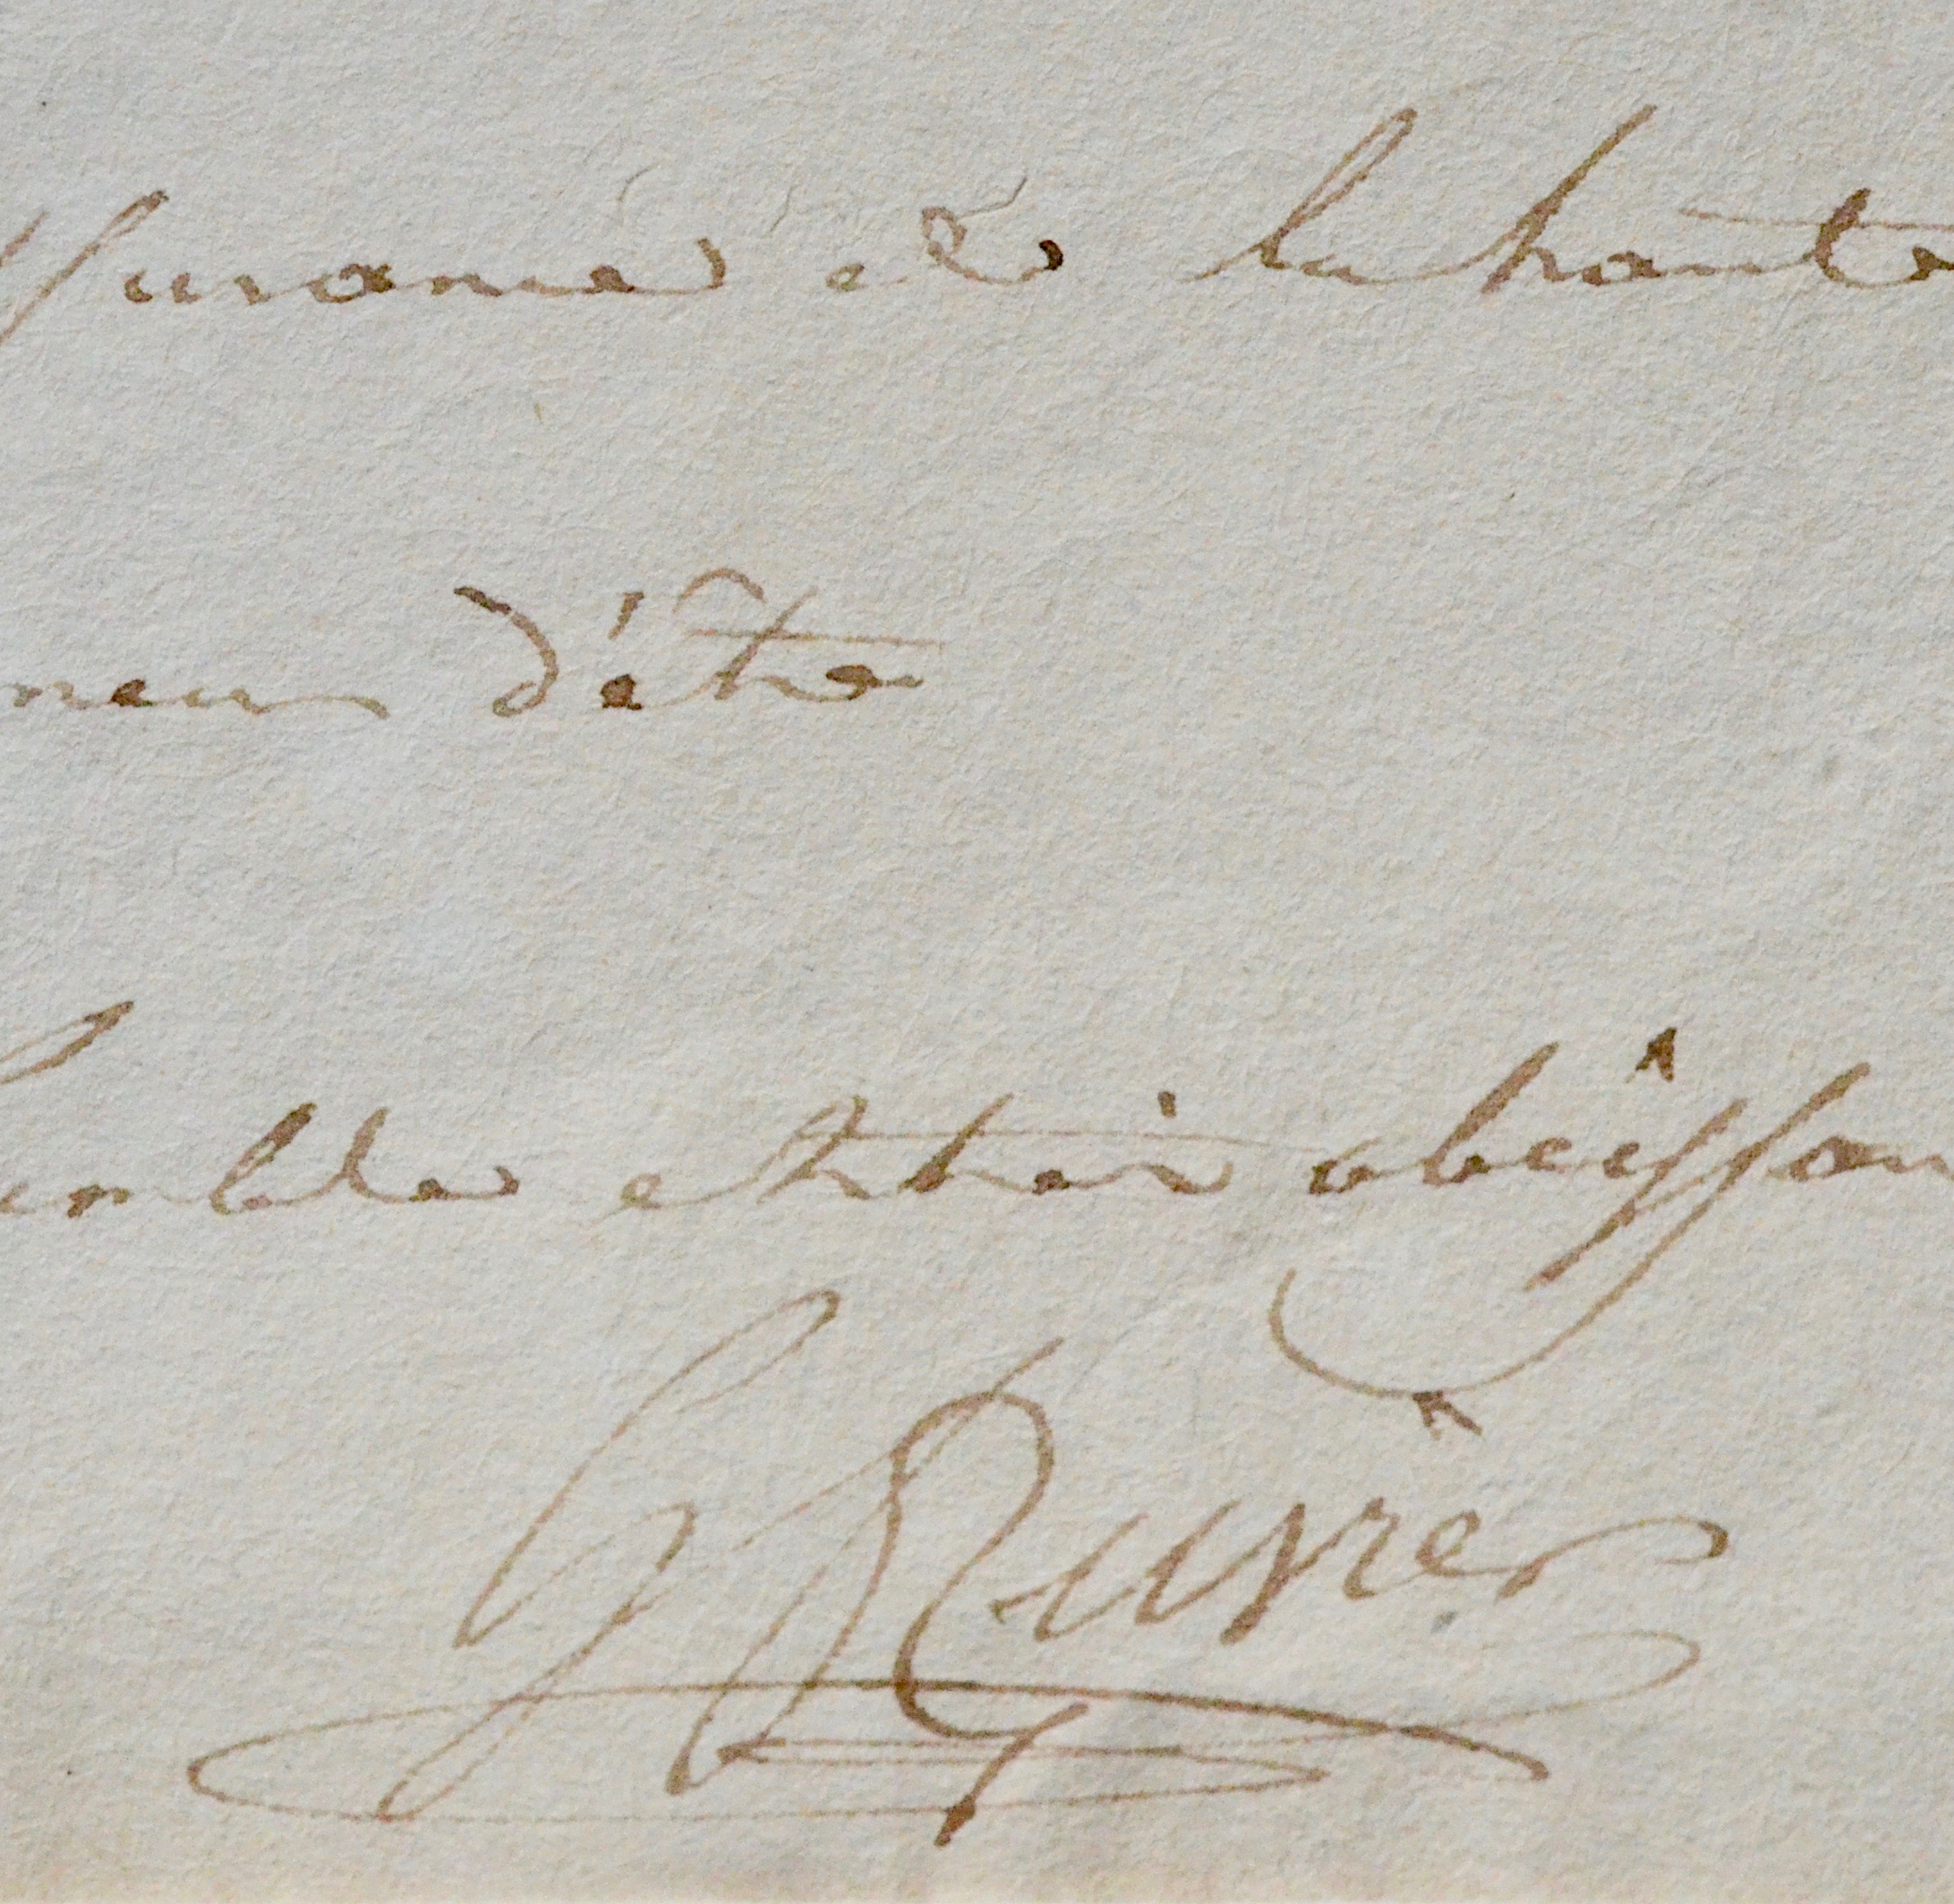 ssurance et de la haute
neur d'être
umble et très obeissan
G Cuvier